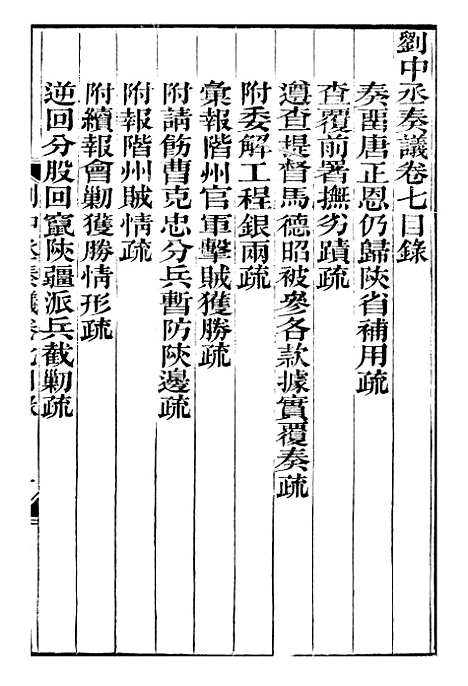 劉中丞奏議卷七目錄
奏畱唐正恩仍歸陝省補用疏
查覆前署撫劣蹟疏
遵查提督馬德昭被參各款據實覆奏疏
附委解工程銀兩疏
彙報階州官軍擊賊獲勝疏
附請飭曹克忠分兵暫防陝邊疏
附報階州賊情疏
附續報會勦獲勝情形疏
逆回分股回竄陝疆派兵截勦疏